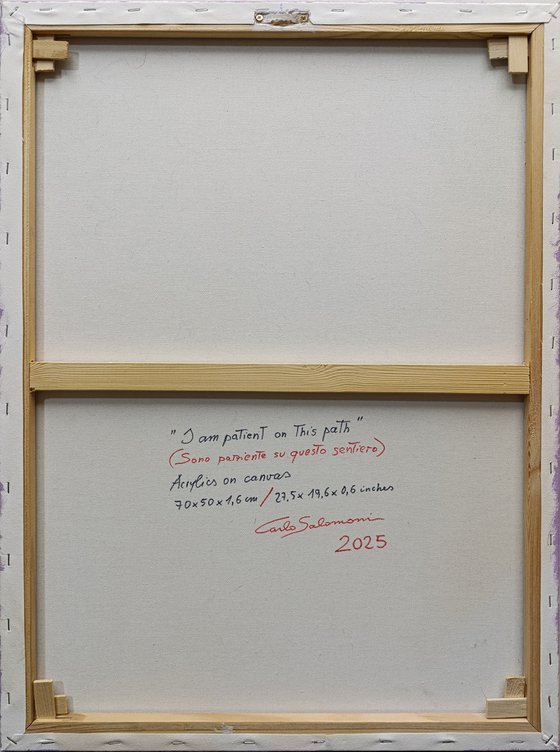 "I am patient on This path"
(Sono paziente su questo sentiero)
Acrylics on canvas
70x50x1,6 cm / 27,5x19,6x0,6 inches
Carlo Salomoni
2025